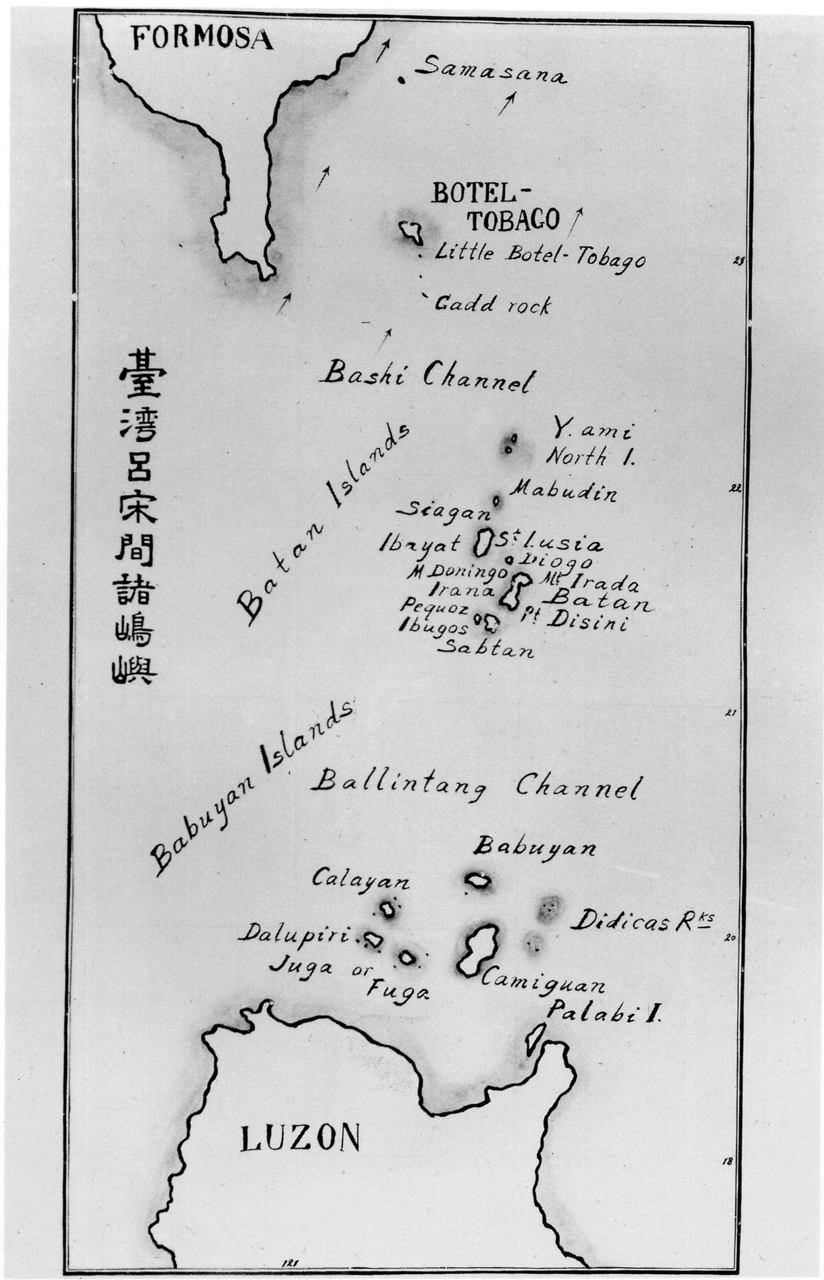 FORMOSA
Samasana
BOTEL-
TOBAGO
Little Botel-Tobago
23
Gadd rock
Bashi Channel
臺灣呂宋間諸嶋嶼
Batan Islands
Y.ami
North I.
Mabudin
22
Siagan
Ibayat
St Lusia
Diogo
M Doningo
Mt Irada
Irana
Batan
Pequoz
Pt Disini
Ibugos
Sabtan
21
Babuyan Islands
Ballintang Channel
Babuyan
Calayan
Didicas Rks
Dalupiri
20
Juga or
Fuga
Camiguan
Palabi I.
LUZON
18
121